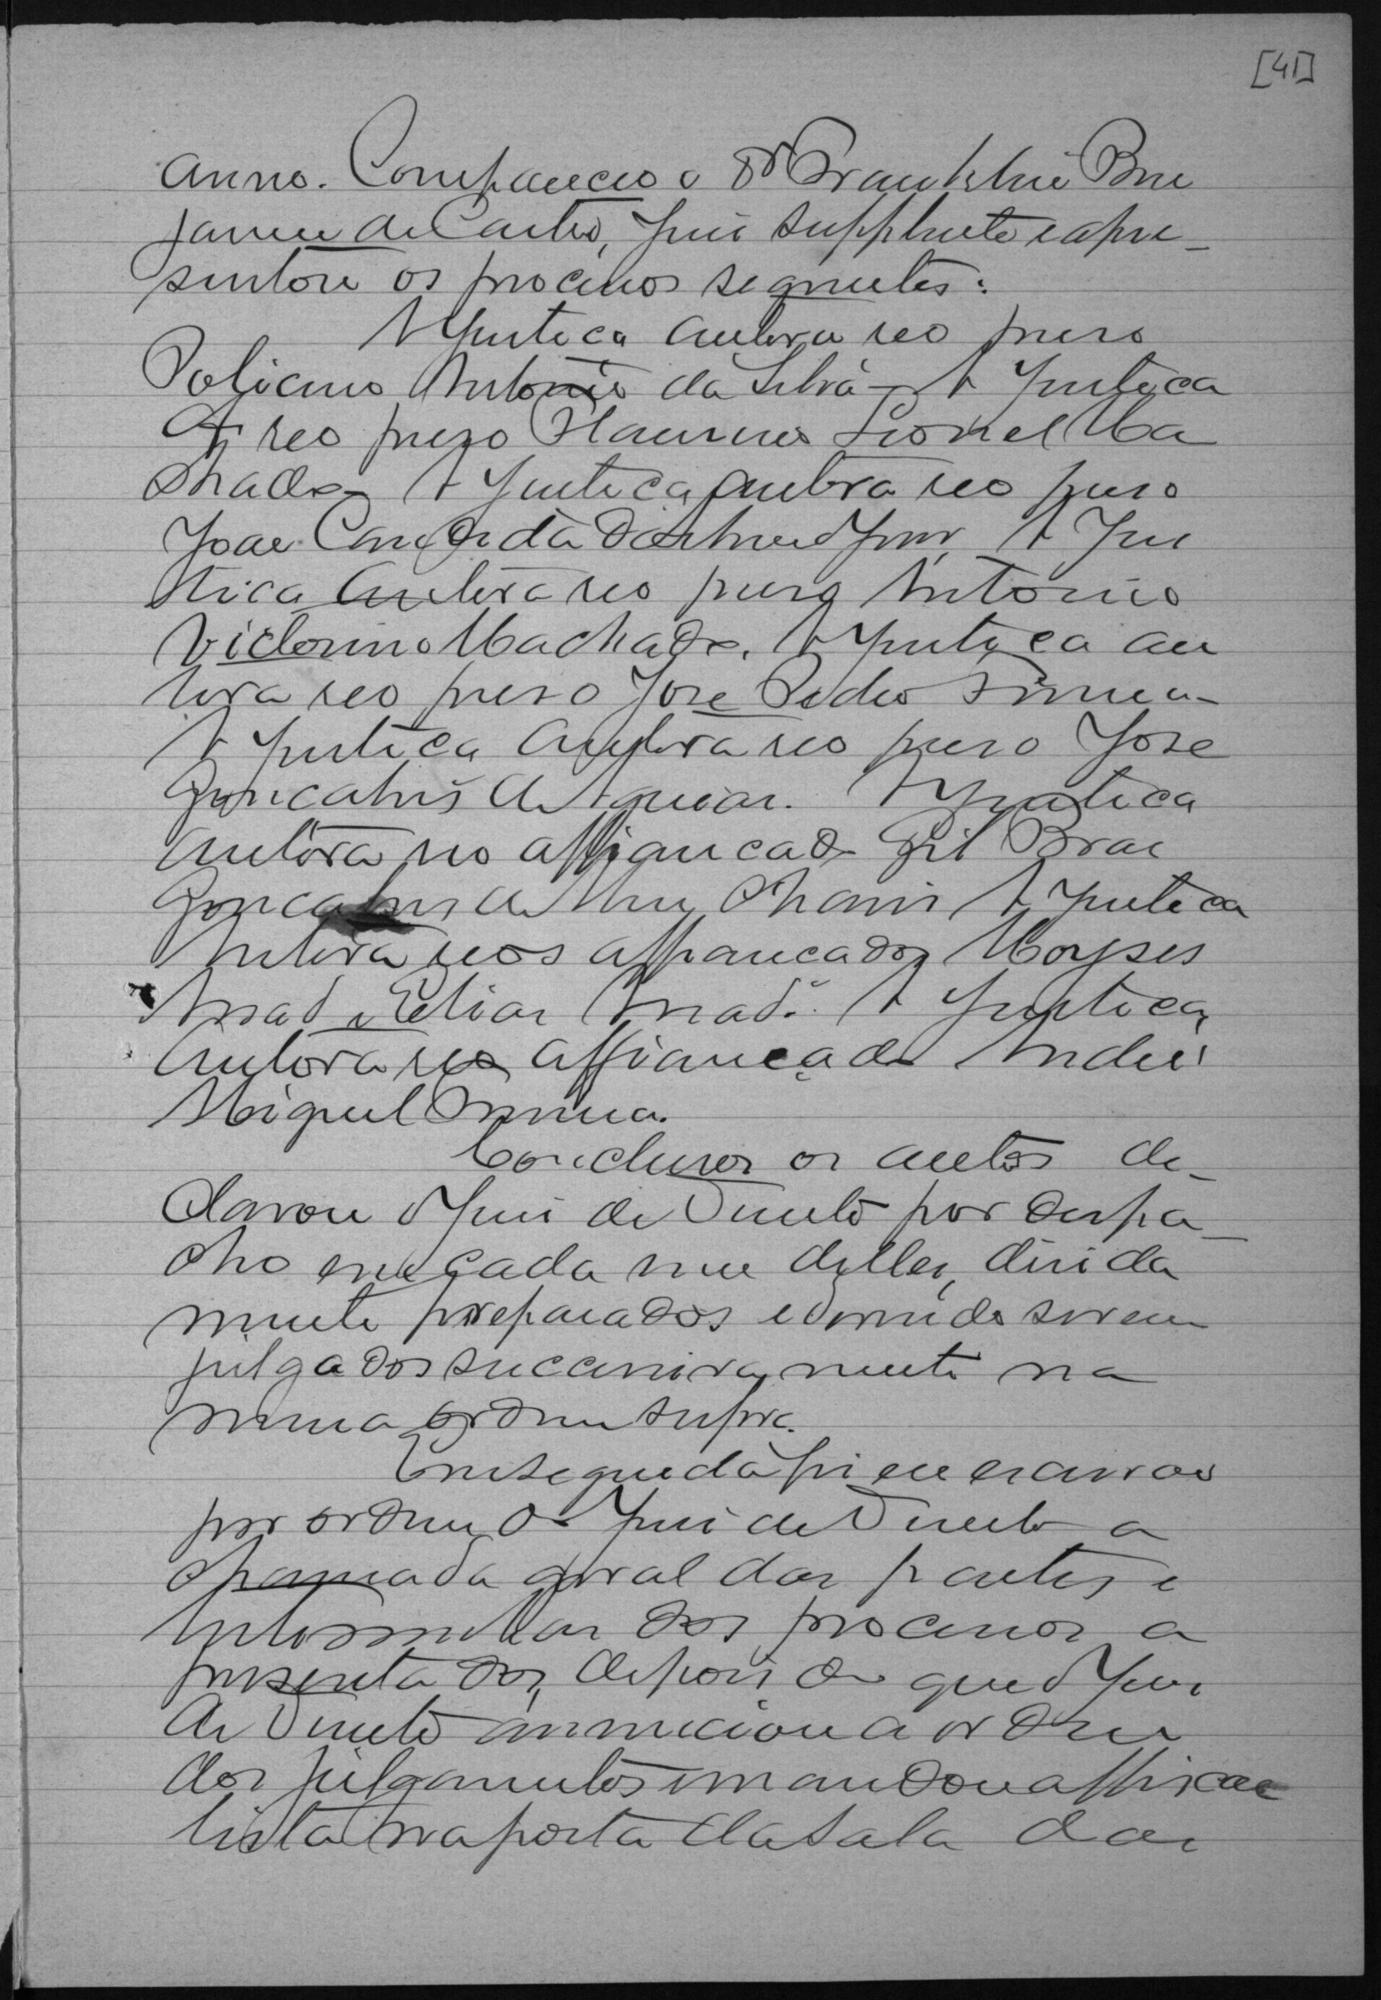 [41]
anno. Compareceo o Dr Franklin Ben
jamin de Castro, juiz supplente e apre_
sentou os processos seguintes:
A Justiça autora reo preso
Policano Antonio da Silva - A Justiça
A, reo preso Lionel Ma
chado - A Justiça autora reo preso
João Candido Junr, A Jus
tiça autora reo preso Antonio
Victorino Machado. A Justiça au
tora reo preso José Pedro
A Justiça autora reo preso José
Gonçalves de Aguiar. A Justiça
autora reo affiançado Gil Braz
Gonçalves de Chaves A Justiça
Autora reos affiançados Moyses
Assad e Elias Assad. A Justiça
autora reo affiançado André
Miguel
Conclusos os autos de_
clarou o Juiz de Direito por despa_
cho em cada um delles, devida
mente preparados e devendo serem
julgados successivamente na
mesma ordem supra.
Em seguida fiz eu escrivão
por ordem do Juiz de Direito a
chamada geral das partes e
testemunhas dos processos a
presentados, depois do que o Juiz
de Direito annunciou a ordem
dos julgamentos e mandou affixar
lista na porta da sala das